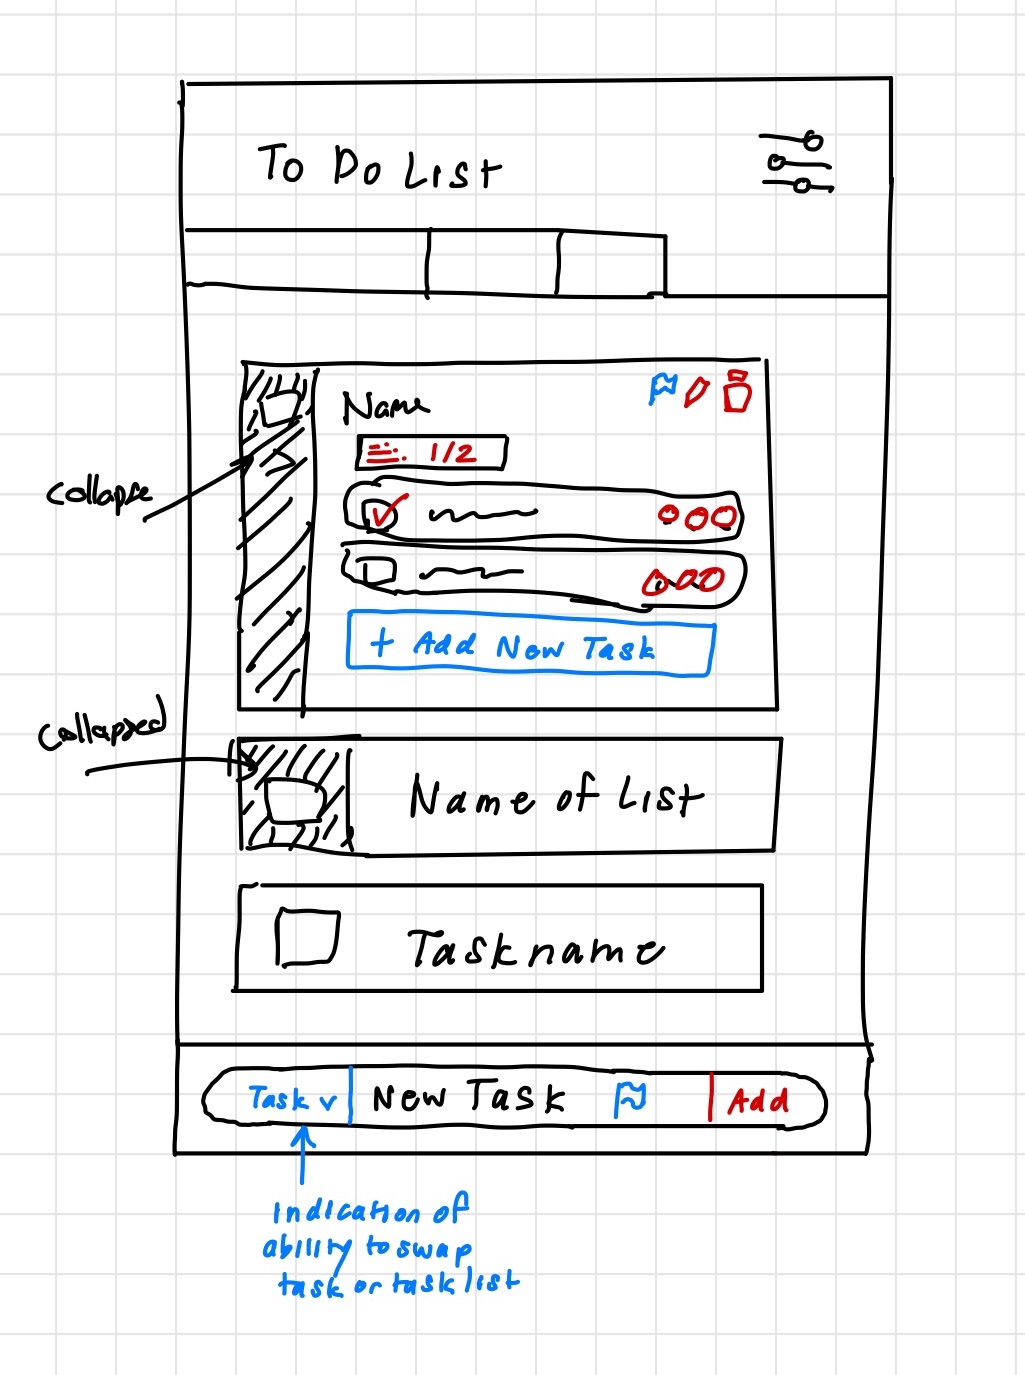 To Do List
Name
collapse
1/2
+ Add New Task
collapsed
Name of List
Taskname
Task v
New Task
Add
indication of
ability to swap
task or task list